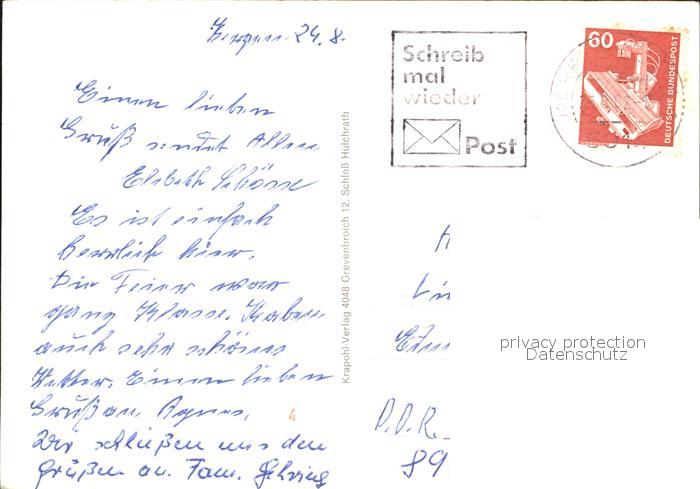 24.8.
Einen lieben
Gruß sendet Allen
Elsbeth
Es ist einfach
herrlich hier.
Die Feier war
ganz Klasse. Haben
auch sehr schönes
Wetter. Einen lieben
Gruß an Agnes.
Wir schließen uns den
Grüßen an. Fam. Gehring
Krapohl-Verlag 4048 Grevenbroich 12, Schloß Hülchrath
Schreib
mal
wieder
Post
60
DEUTSCHE BUNDESPOST
privacy protection
Datenschutz
D.D.R.
89